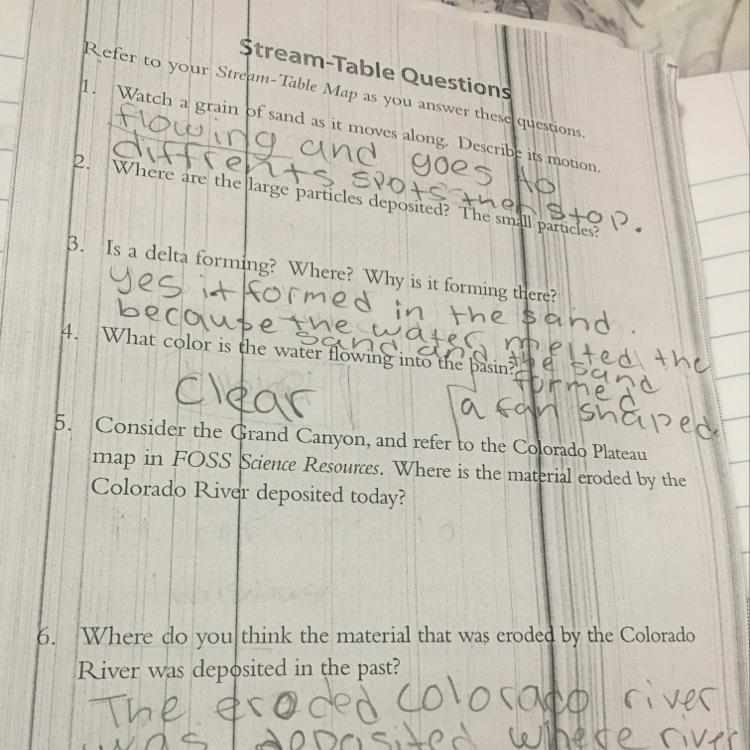 Stream-Table Questions
Refer to your Stream-Table Map as you answer these questions.
1. Watch a grain of sand as it moves along. Describe its motion.
flowing and goes to
diffrents spots then stop.
2. Where are the large particles deposited? The small particles?
3. Is a delta forming? Where? Why is it forming there?
yes it formed in the sand.
because the water melted the
sand and the sand
formed
a fan shaped
4. What color is the water flowing into the basin?
clear
5. Consider the Grand Canyon, and refer to the Colorado Plateau
map in FOSS Science Resources. Where is the material eroded by the
Colorado River deposited today?
6. Where do you think the material that was eroded by the Colorado
River was deposited in the past?
The eroded colorado river
was deposited where river